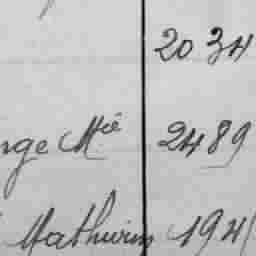 2034
nge Mie 2489
Mathurin 194